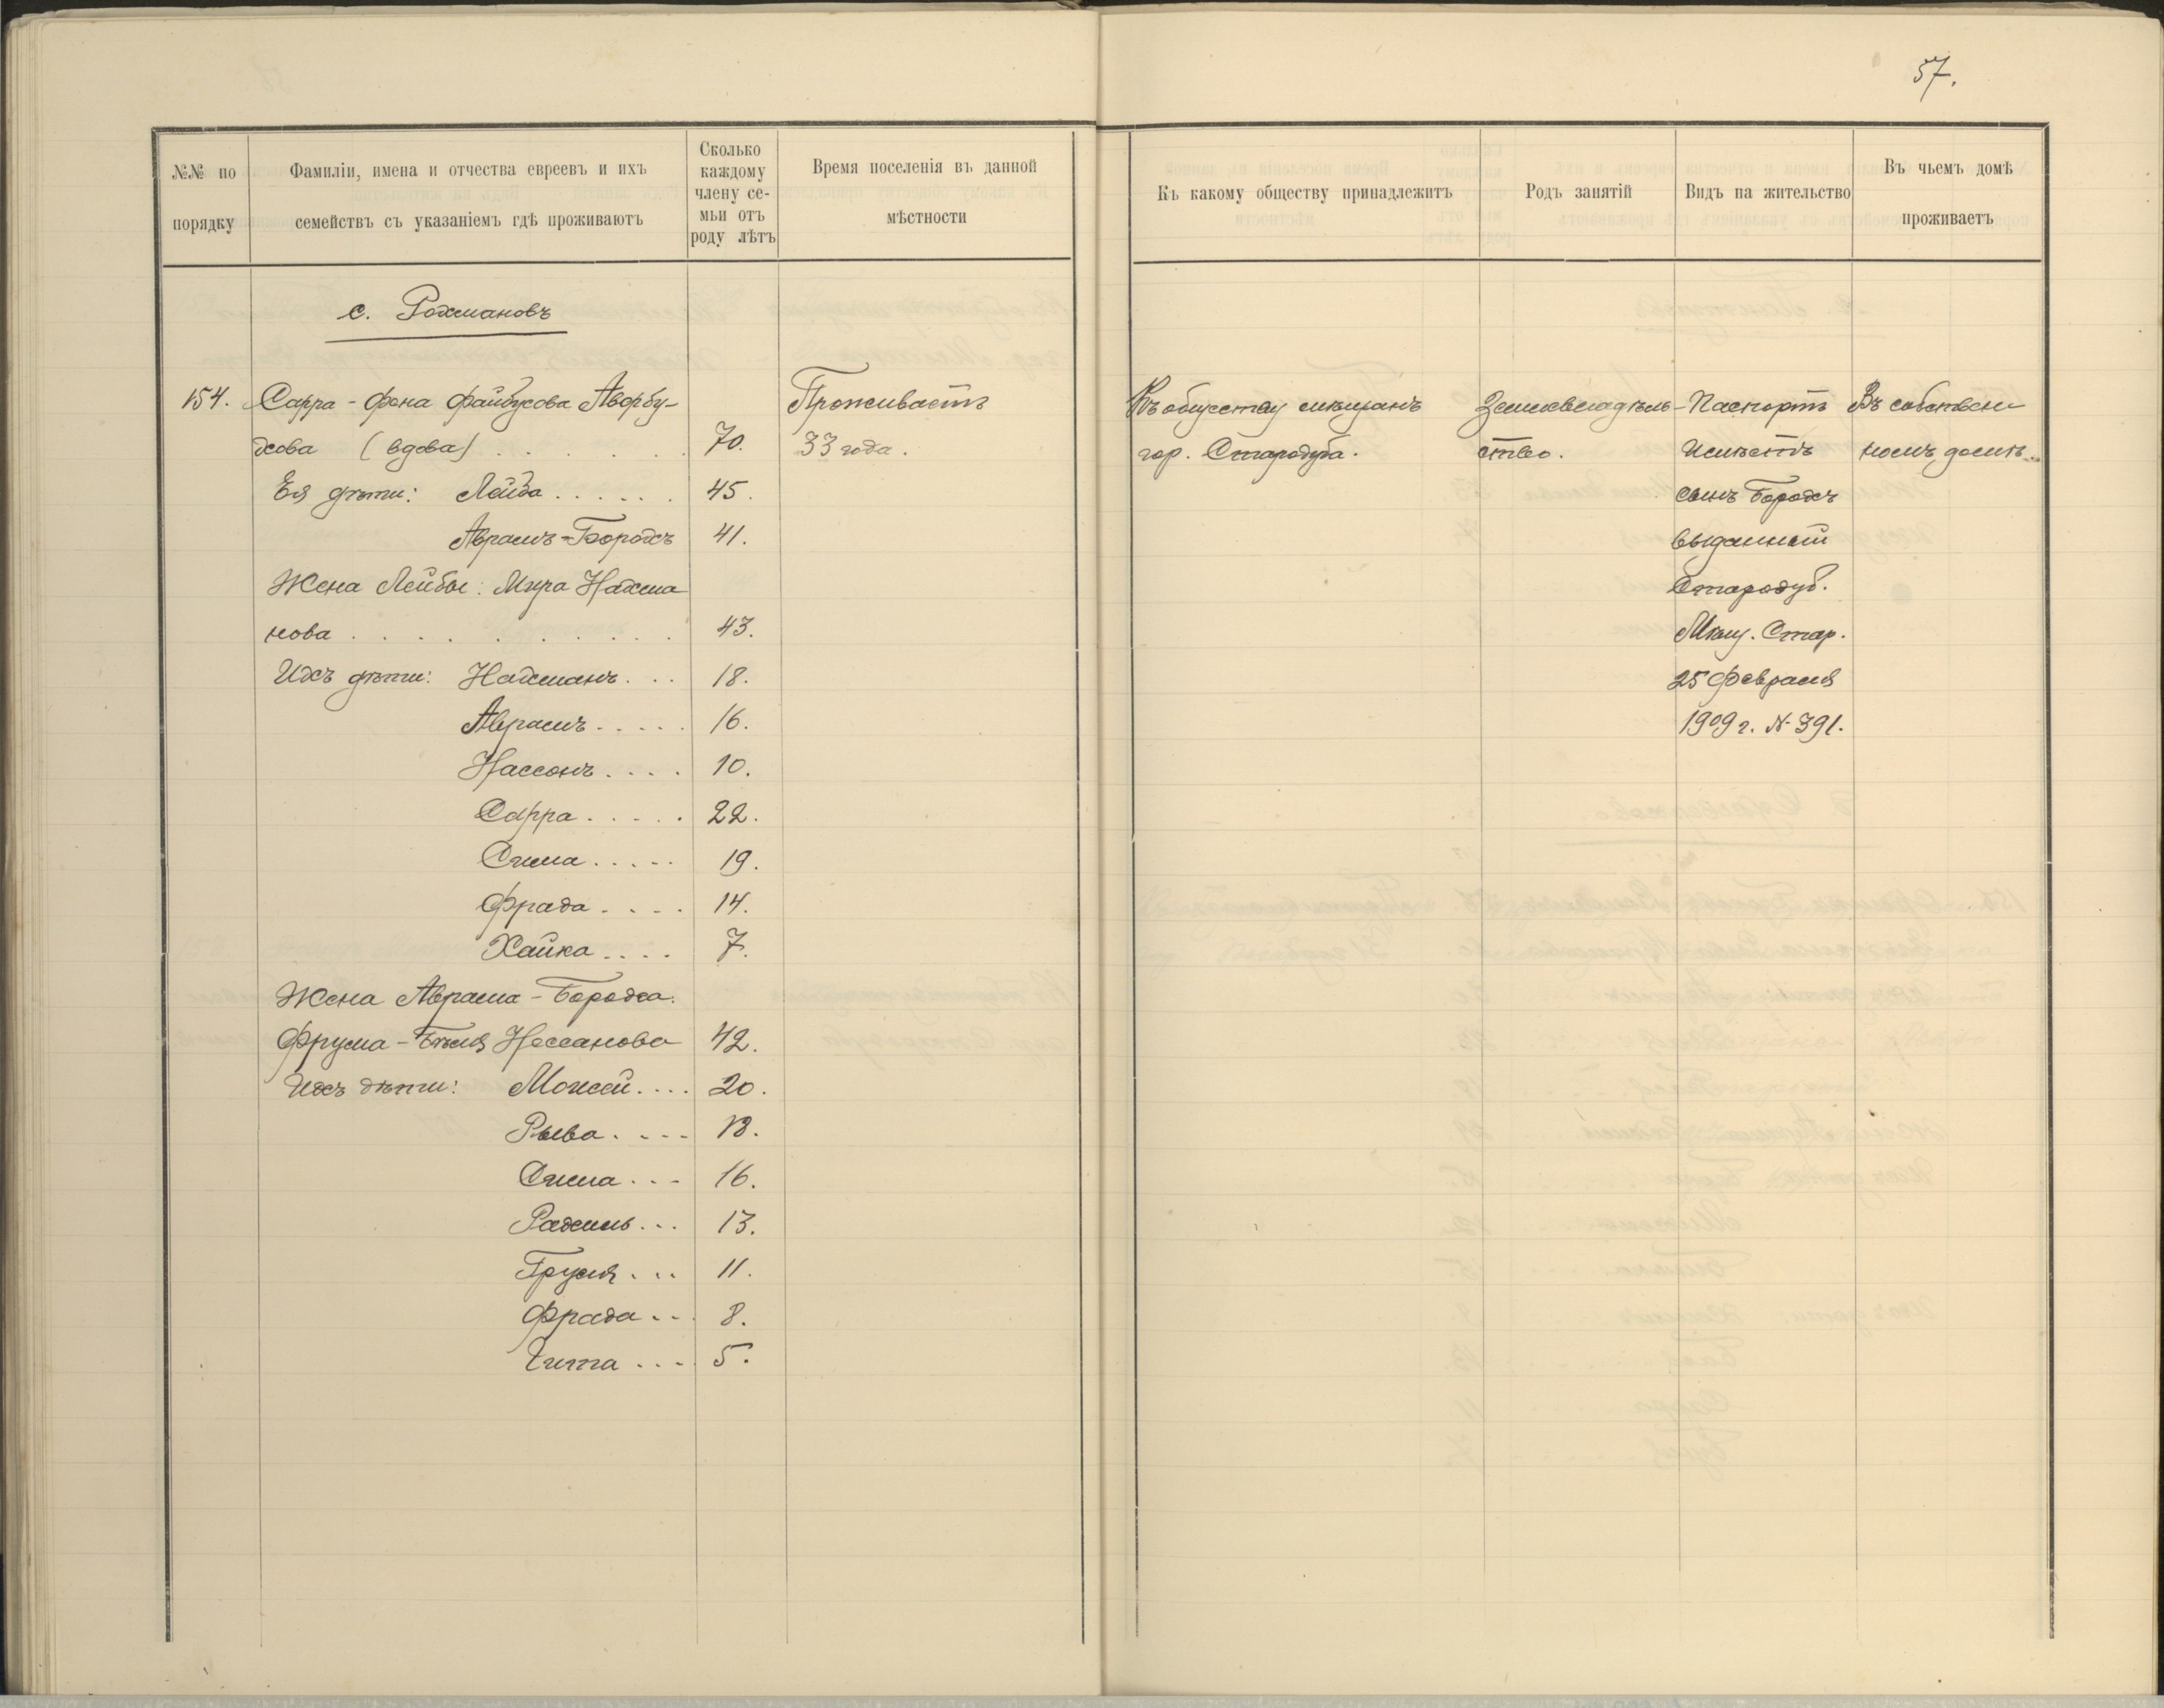 57.
№№ по порядку
Фамиліи, имена и отчества евреевъ и ихъ
семействъ съ указаніемъ гдѣ проживаютъ
Сколько
каждому
члену се-
мьи отъ
роду лѣтъ
Время поселенія въ данной
мѣстности
Къ какому обществу принадлежитъ
Родъ занятій
Видъ на жительство
Въ чьемъ домѣ
проживаетъ
с. Рохмановъ
154. Сарра - Фона Файбусова Аворбу-
хова (вдова) . . . . . . 70.
Проживаетъ
33 года.
Къ обществу мѣщанъ
гор. Стародуба.
Землевладѣль-
ство.
Паспортъ
Имѣетъ
сынъ Борохъ
выданный
Стародуб.
Мѣщ. Стар.
25 Февраля
1909 г. № 391.
Въ собствен-
номъ домѣ.
Ея дѣти: Лейба . . . . . . 45.
Абрамъ-Борохъ 41.
Жена Лейбы: Мира Нахма
нова . . . . . . . . 43.
Ихъ дѣти: Нахманъ. . . 18.
Абрамъ . . . . . 16.
Нассонъ . . . . 10.
Сарра . . . . . 22.
Сима . . . . . 19.
Фрада . . . . 14.
Хайка . . . . 7.
Жена Абрама - Бороха.
Фрума - Бѣля Нессанова 42.
Ихъ дѣти: Моисей. . . . 20.
Рыва. . . . 18.
Сима . . . 16.
Рахиль . . . 13.
Груня . . . 11.
Фрада . . . 8.
Гита . . . 5.